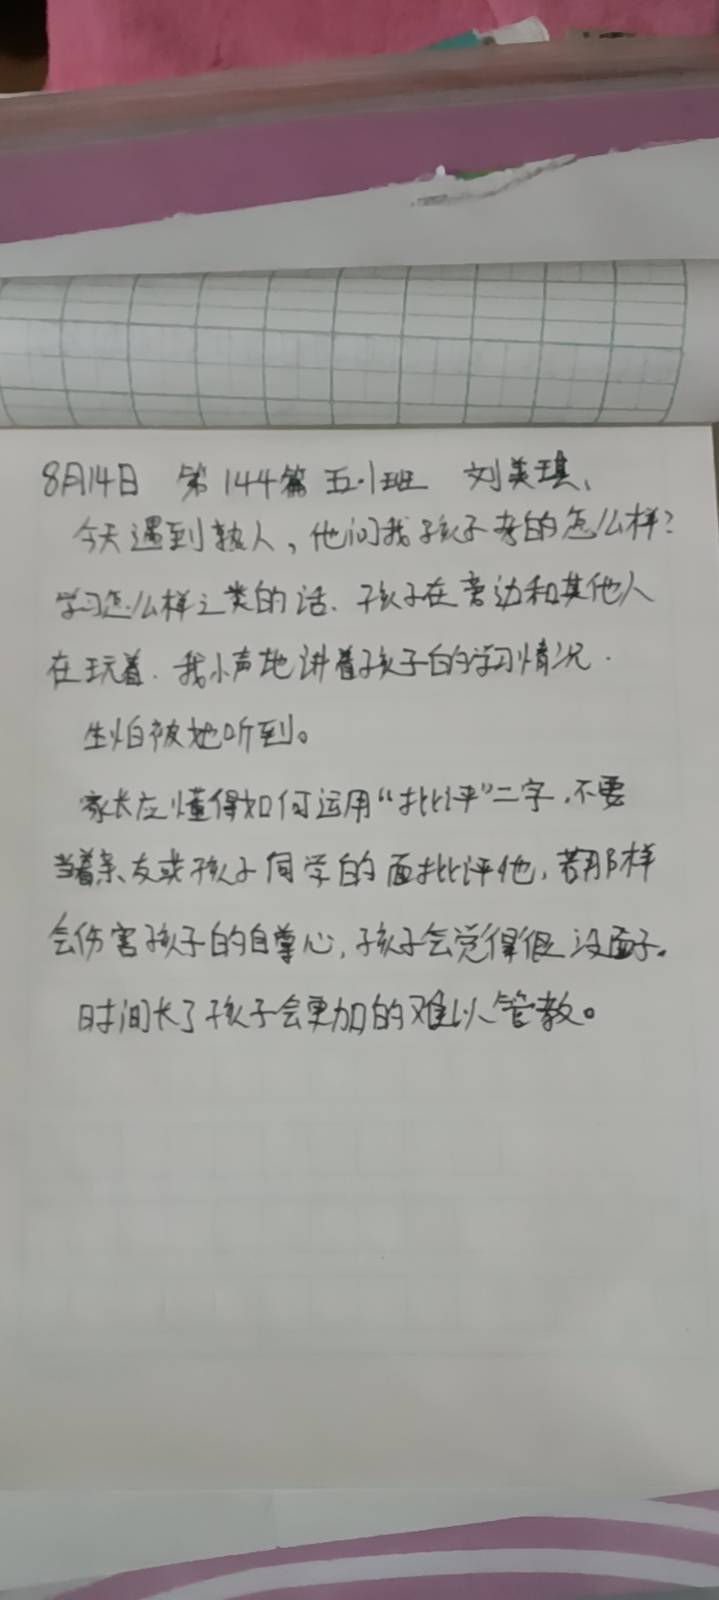 8月14日 第144篇 五·1班 刘美琪、
今天遇到熟人，他问我孩子考的怎么样？
学习怎么样之类的话、孩子在旁边和其他人
在玩着．我小声地讲着孩子的学习情况．
生怕被她听到。
家长应懂得如何运用“批评”二字，不要
当着亲友或孩子同学的面批评他，若那样
会伤害孩子的自尊心，孩子会觉得很没面子。
时间长了孩子会更加的难以管教。